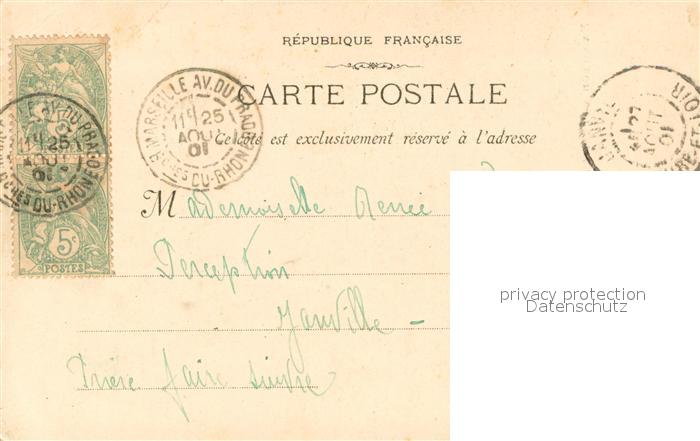 RÉPUBLIQUE FRANÇAISE
CARTE POSTALE
Ce côté est exclusivement réservé à l'adresse
MARSEILLE AV. DU PRADO
11H 25
AOUT
01
BCHES DU-RHONE
MARSEILLE AV. DU PRADO
11H 25
AOUT
01
BCHES DU-RHONE
5c
POSTES
JANVILLE
27
AOUT
01
EURE-ET-LOIR
Mademoiselle Renée
Perception
Janville -
Prière faire suivre
privacy protection
Datenschutz